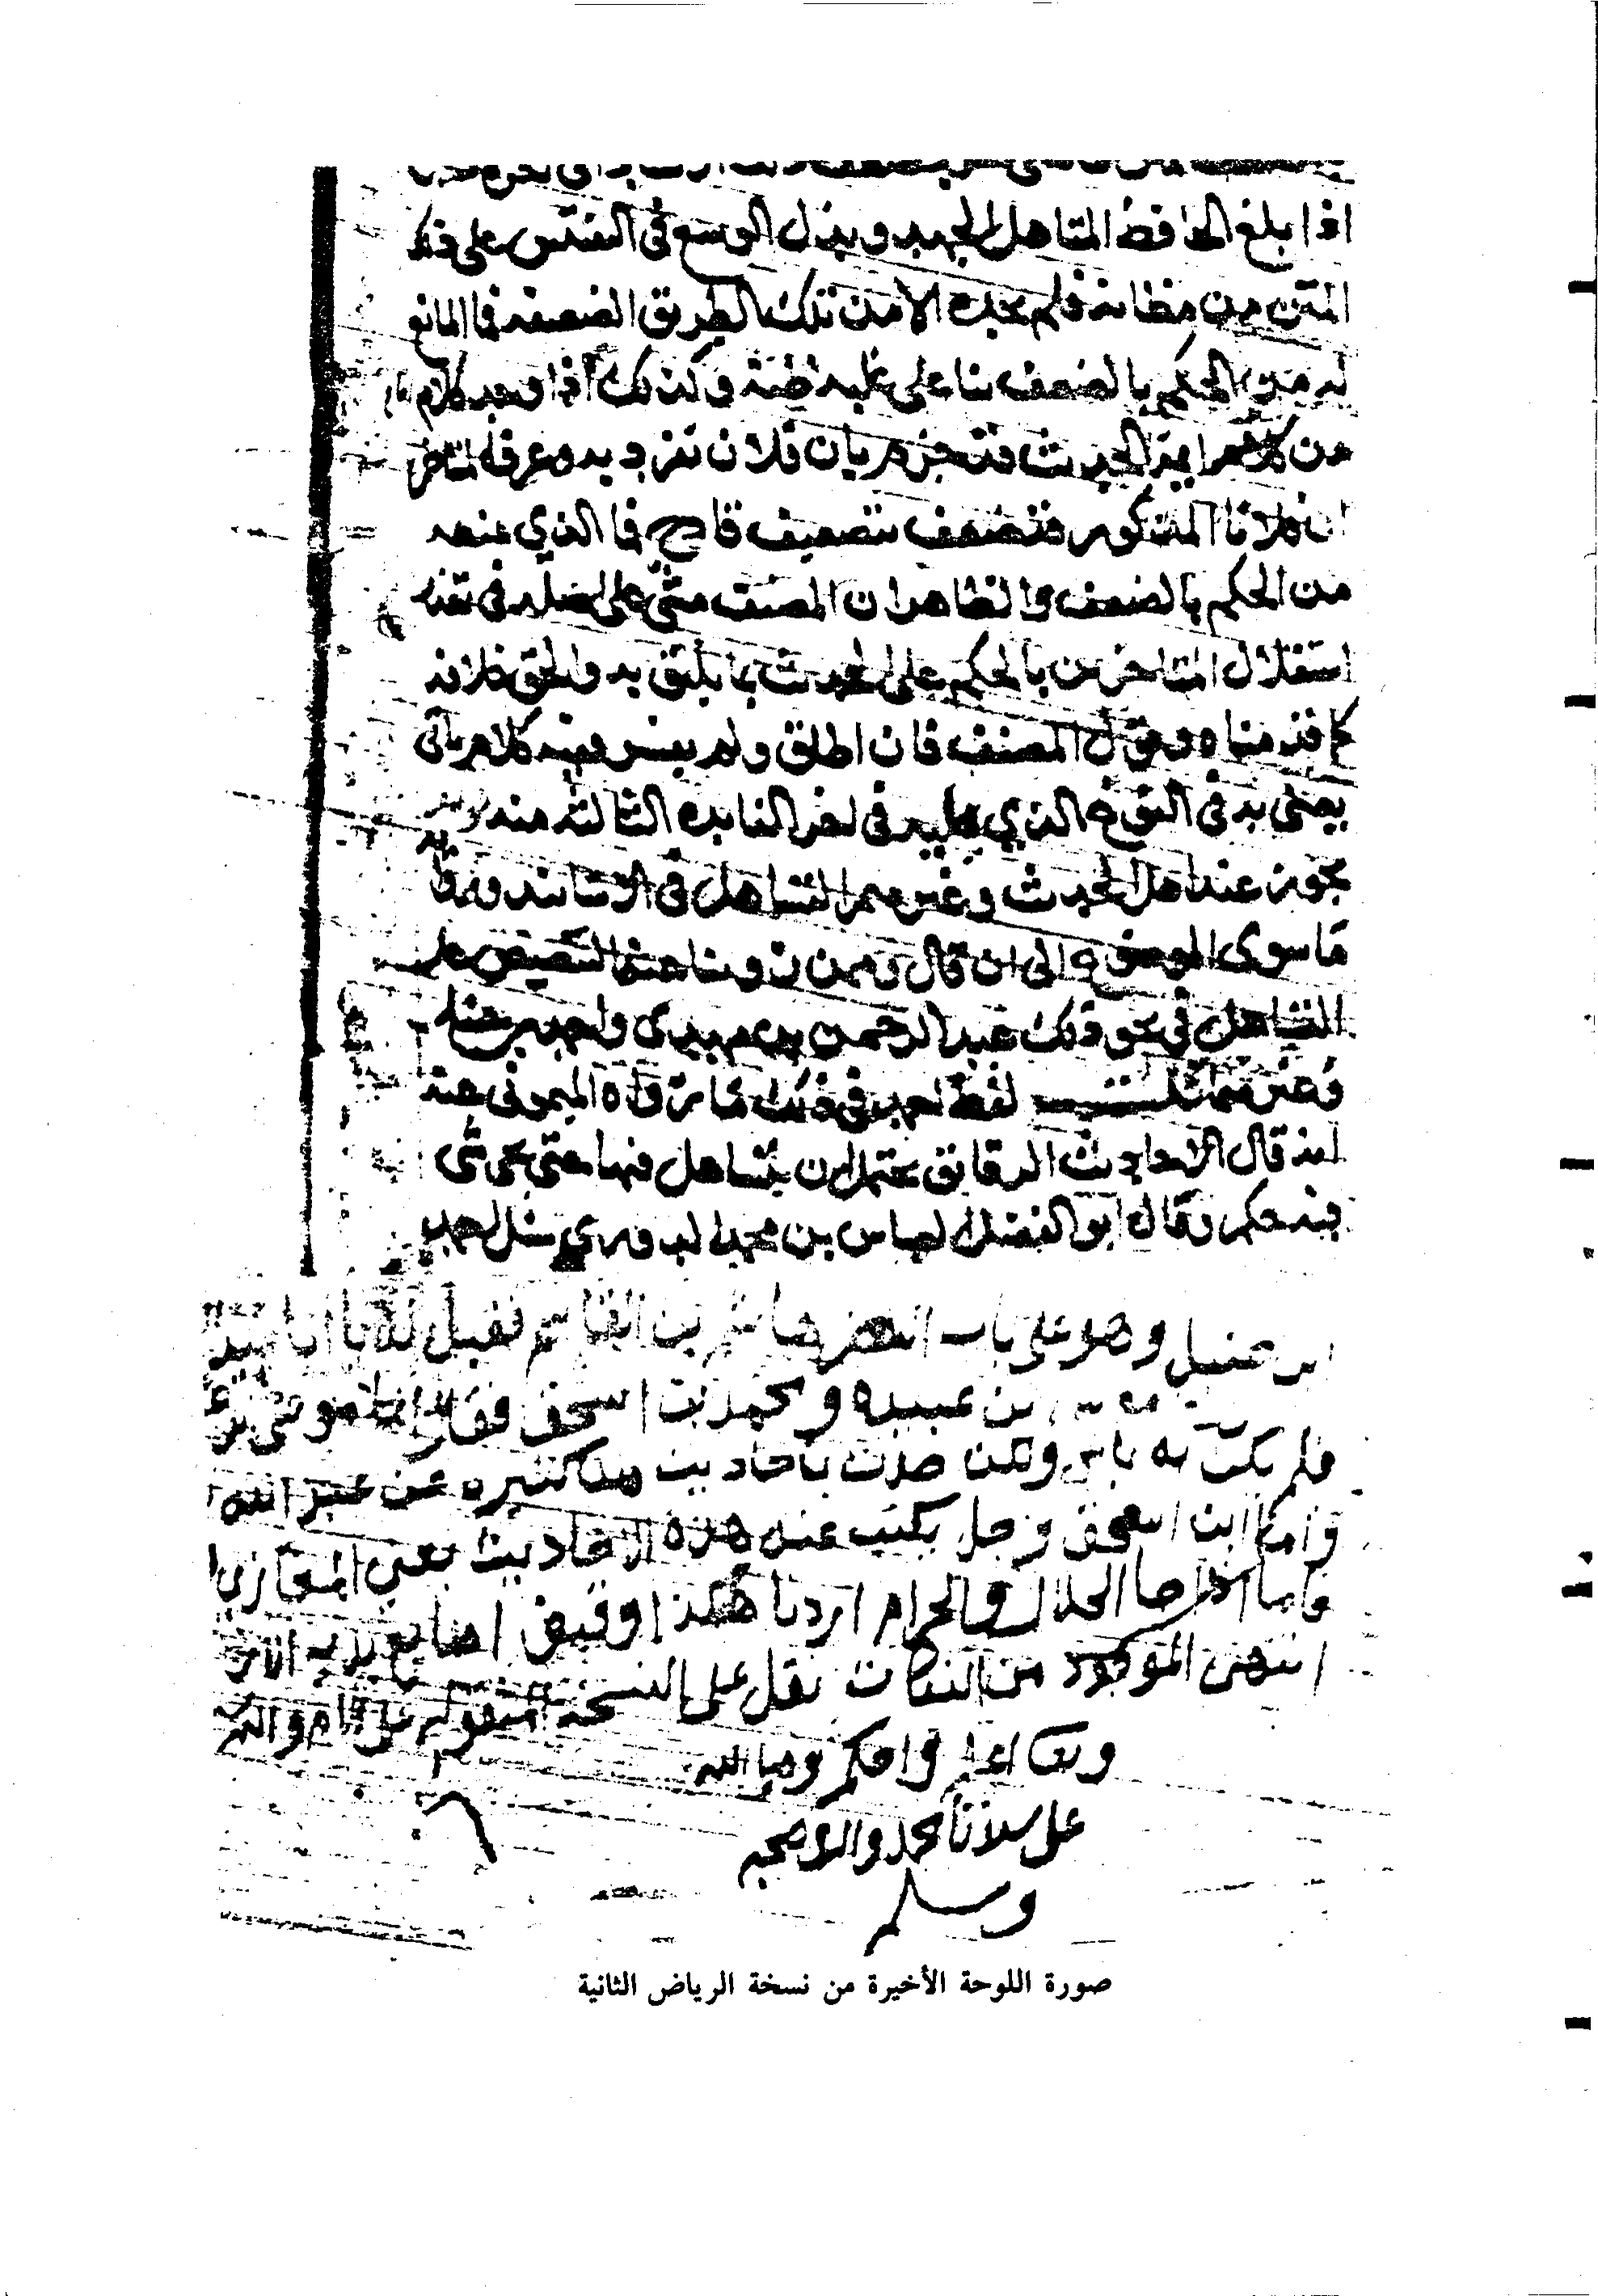 اذا بلغ الحافظ المتاهل الجهد وبذل الوسع في التفتيش على ذلك
المتن من مظانه فلم يجده الا من تلك الطريق الضعيفه فما المانع
له من الحكم بالضعف بناء على غلبه ظنه وكذلك اذا وجد كلام
من ايمة الحديث قد جزم بان فلان تفرد به وعرف المتاخر
ان فلانا المذكور قد ضعف بتضعيف قادح فما الذي يمنعه
من الحكم بالضعف والظاهر ان المصنف مشى على اصله في تعذر
استقلال المتاخرين بالحكم على الحديث بما يليق به والحق خلافه
كما قدمناه وقول المصنف فان اطلق ولم يفسر ففيه كلام ياتي
يعني به في النوع الذي يليه في اخر الفايده الثالثه منه
يجوز عند اهل الحديث وغيرهم التساهل في الاسانيد وروا
ما سوى الموضوع الى ان قال وممن روينا عنه التنصيص على
التساهل في نحو ذلك عبد الرحمن بن مهدي واحمد بن حنبل
وغيرهما لفظ احمد في ذلك ما رواه الميموني عنه
انه قال الاحاديث الرقايق يحتمل ان يتساهل فيها حتى يجي شي
فيه حكم وقال ابو الفضل العباس بن محمد الدوري سئل احمد
ابن حنبل وهو على باب النضر هاشم بن القاسم فقيل له يا ابا عبد
بن عبيده ومحمد بن اسحق فقال اما موسى بن
فلم يكن به باس ولكن حدث باحاديث مناكيره عن عبد الله
واما ابن اسحق فرجل يكتب عنه هذه الاحاديث يعني المغازي
واما اذا جا الحلال والحرام اردنا هكذا وقبض اصابع يديه الاربع
انتهى الموجود من النكات نقل على النسخة المنقوله على
وتعالى اعلم واحكم وصلى الله
على سيدنا محمد واله وصحبه
وسلم
صورة اللوحة الأخيرة من نسخة الرياض الثانية